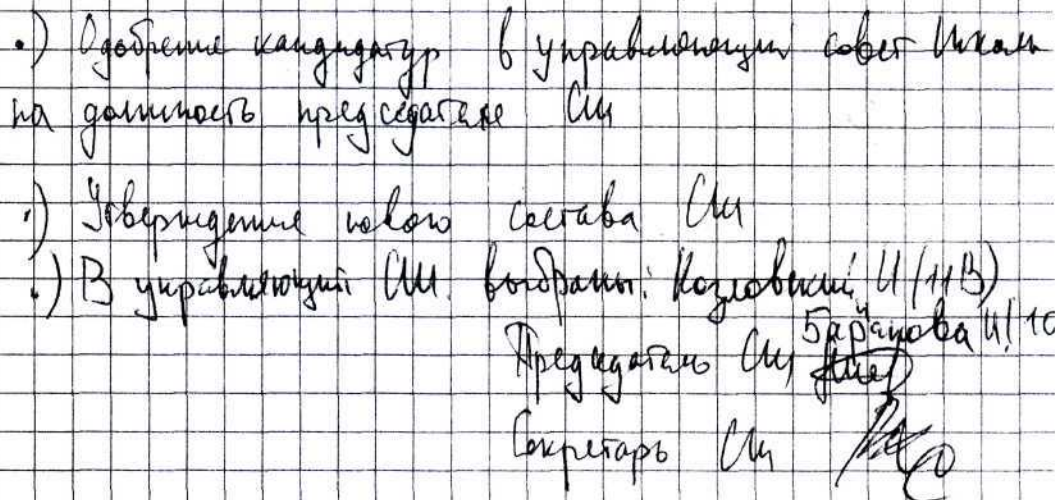 •) Одобрение кандидатур в управляющий совет Школы
на должность председателя СШ
•) Утверждение нового состава СШ
•) В управляющий СШ. выбраны: Козловский И (11В)
Баранова И! 10
Председатель СШ
Секретарь СШ